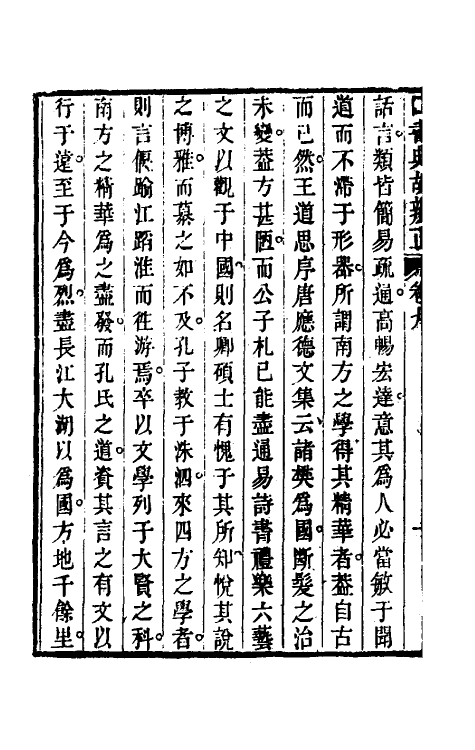 書典故辨正 卷
話言。類皆簡易疏通。高暢宏達。意其爲人必當敏于聞
道而不滯于形器。所謂南方之學得其精華者。葢自古
而已然。王道思序唐應德文集云。諸樊爲國。斷髮之治
未變。葢方甚陋。而公子札已能盡通易詩書禮樂六藝
之文以觀于中國。則名卿碩士有愧于其所知、悅其說
之博雅。而慕之如不及。孔子教于洙泗。來四方之學者。
則言偃踰江蹈淮而徃游焉。卒以文學列于大賢之科。
南方之精華爲之盡發。而孔氏之道。資其言之有文以
行于遠。至于今爲烈。盡長江大湖以爲國。方地千餘里。